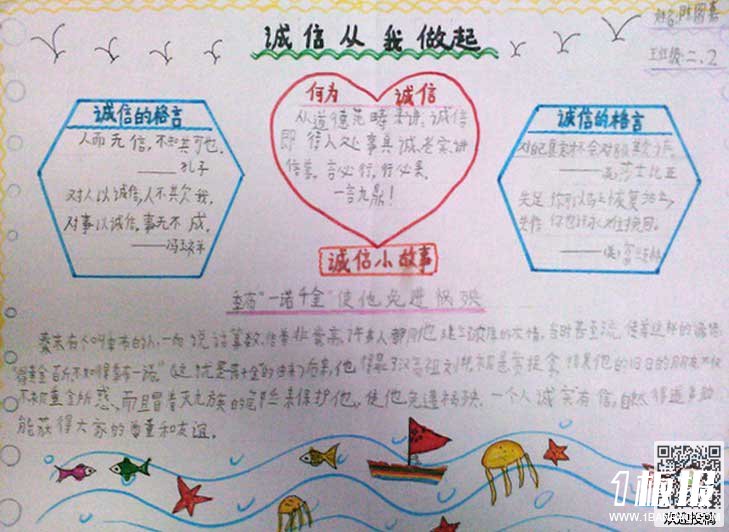 诚信从我做起
姓名:陈
班级:二、2
诚信的格言
人而无信,不知其可也.
——孔子
对人以诚信,人不欺我,
对事以诚信,事无不成.
——冯玉祥
何为 诚信
从道德范畴来讲,诚信
即待人处事真诚、老实、讲
信誉,言必行,行必果,
一言九鼎!
诚信的格言
对自己真实,才不会对别人欺诈.
——莎士比亚
失足,你可以马上恢复站立,
失信,你也许永难挽回.
诚信小故事
季布"一诺千金"使他免遭祸殃
秦末有个叫季布的人,一向说话算数,信誉非常高,许多人都同他建立浓厚的友情.当时甚至流传着这样的谚语:
"得黄金百斤,不如得季布一诺."(这就是一诺千金的由来)后来,他得罪了汉高祖刘邦,被悬赏捉拿.结果他的旧日的朋友不仅
不被重金所惑,而且冒着灭九族的危险来保护他,使他免遭祸殃.一个人诚实有信,自然得道多助,
能获得大家的尊重和友谊.
1板报
欢迎投稿